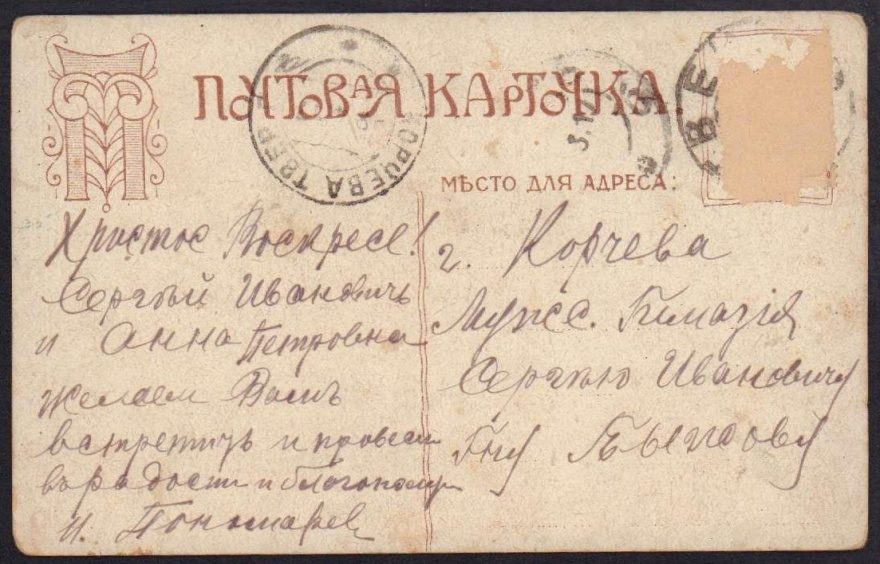 ПОЧТОВАЯ КАРТОЧКА.
КОРЧЕВА ТВЕР
МѢСТО ДЛЯ АДРЕСА:
Христос Воскресе!
Сергѣй Ивановичъ
и Анна Петровна
желаем Вамъ
встретить и провести
въ радости и благополуч
И. Пономарев
г. Корчева
Мужс. Гимазія
Сергѣю Ивановичу
Гну